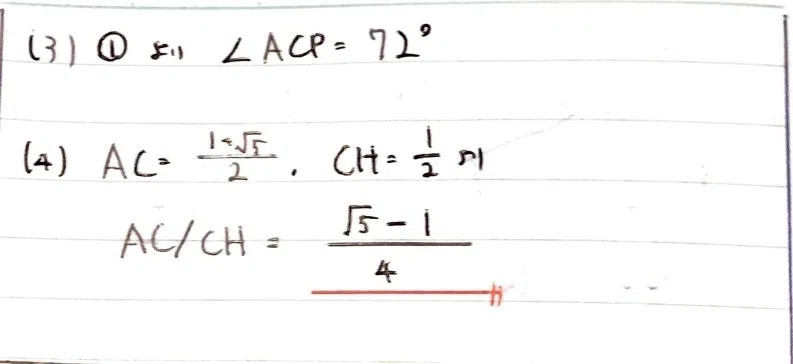 (3) ① より ∠ACP = 72°
(4) AC = (1+√5)/2 , CH = 1/2 より
AC/CH = (√5-1)/4